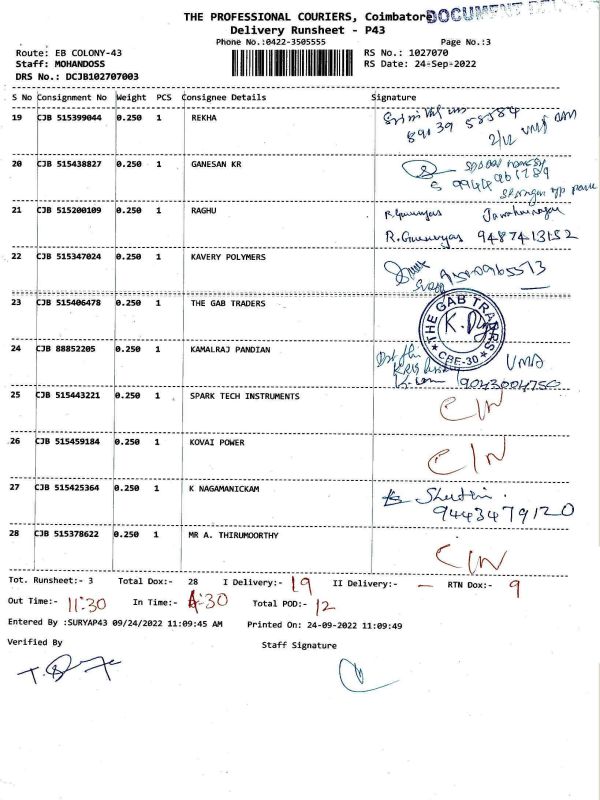 THE PROFESSIONAL COURIERS, Coimbatore
DOCUMENT
Delivery Runsheet - P43
Phone No.:0422-3505555
Page No.:3
Route: EB COLONY-43
RS No.: 1027070
Staff: MOHANDOSS
RS Date: 24-Sep-2022
DRS No.: DCJB102707003
S No Consignment No Weight PCS Consignee Details Signature
19 CJB 515399044 0.250 1 REKHA
20 CJB 515438827 0.250 1 GANESAN KR
21 CJB 515200109 0.250 1 RAGHU
9487413152
22 CJB 515347024 0.250 1 KAVERY POLYMERS
23 CJB 515406478 0.250 1 THE GAB TRADERS
THE GAB TRADERS
CBE-30
24 CJB 88852205 0.250 1 KAMALRAJ PANDIAN
9043004750
25 CJB 515443221 0.250 1 SPARK TECH INSTRUMENTS
CIN
26 CJB 515459184 0.250 1 KOVAI POWER
CIN
27 CJB 515425364 0.250 1 K NAGAMANICKAM
9443479120
28 CJB 515378622 0.250 1 MR A. THIRUMOORTHY
CIN
Tot. Runsheet:- 3 Total Dox:- 28 I Delivery:- 19 II Delivery:- — RTN Dox:- 9
Out Time:- 11:30 In Time:- 4:30 Total POD:- 12
Entered By :SURYAP43 09/24/2022 11:09:45 AM Printed On: 24-09-2022 11:09:49
Verified By
Staff Signature